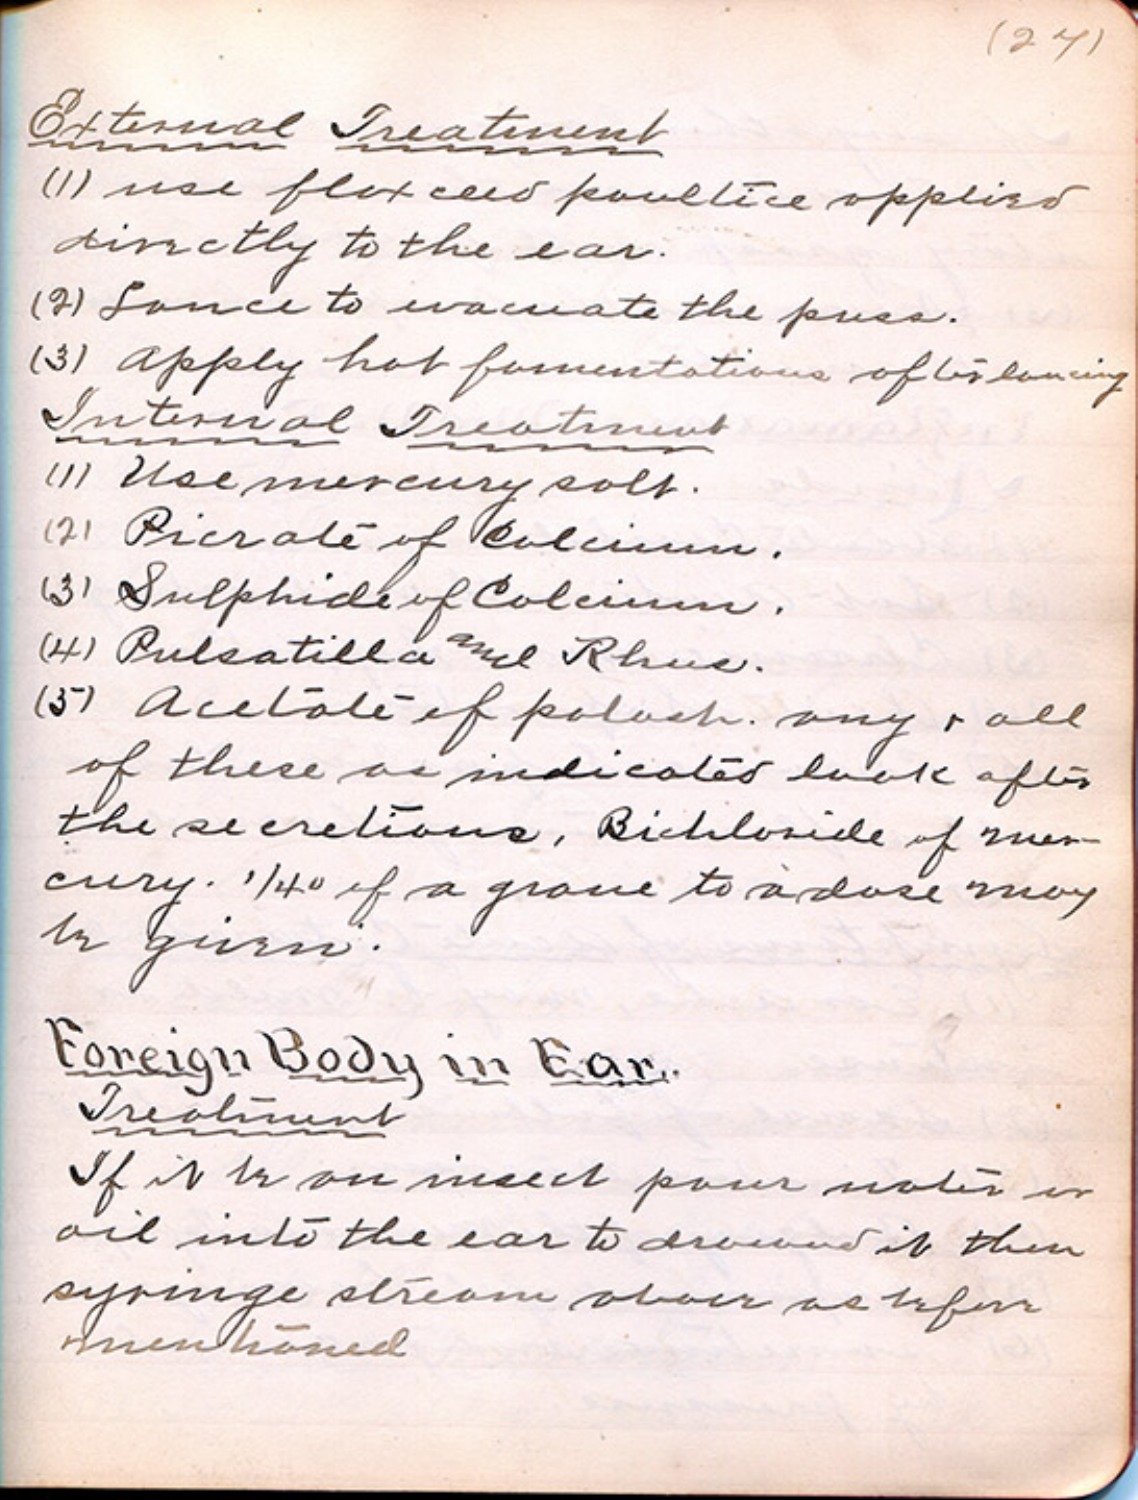 (27)
External Treatment
(1) use flax ceed poultice applied
directly to the ear.
(2) Lance to evacuate the puss.
(3) Apply hot fomentations after lancing
Internal Treatment
(1) Use mercury salt.
(2) Picrate of Calcium.
(3) Sulphide of Calcium.
(4) Pulsatilla and Rhus.
(5) Acetate of potash. any & all
of these as indicated look after
the secretions, Bichloride of mer-
cury. 1/40 of a grane to a dose may
be given.
Foreign Body in Ear.
Treatment
If it be an insect pour water or
oil into the ear to drownd it then
syringe stream above as before
mentioned